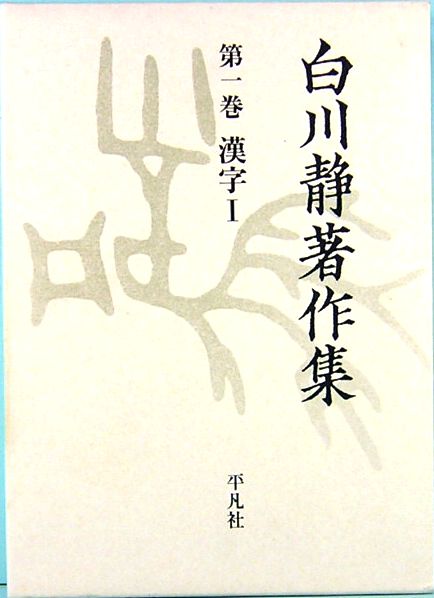 白川静著作集
第一巻 漢字Ⅰ
平凡社